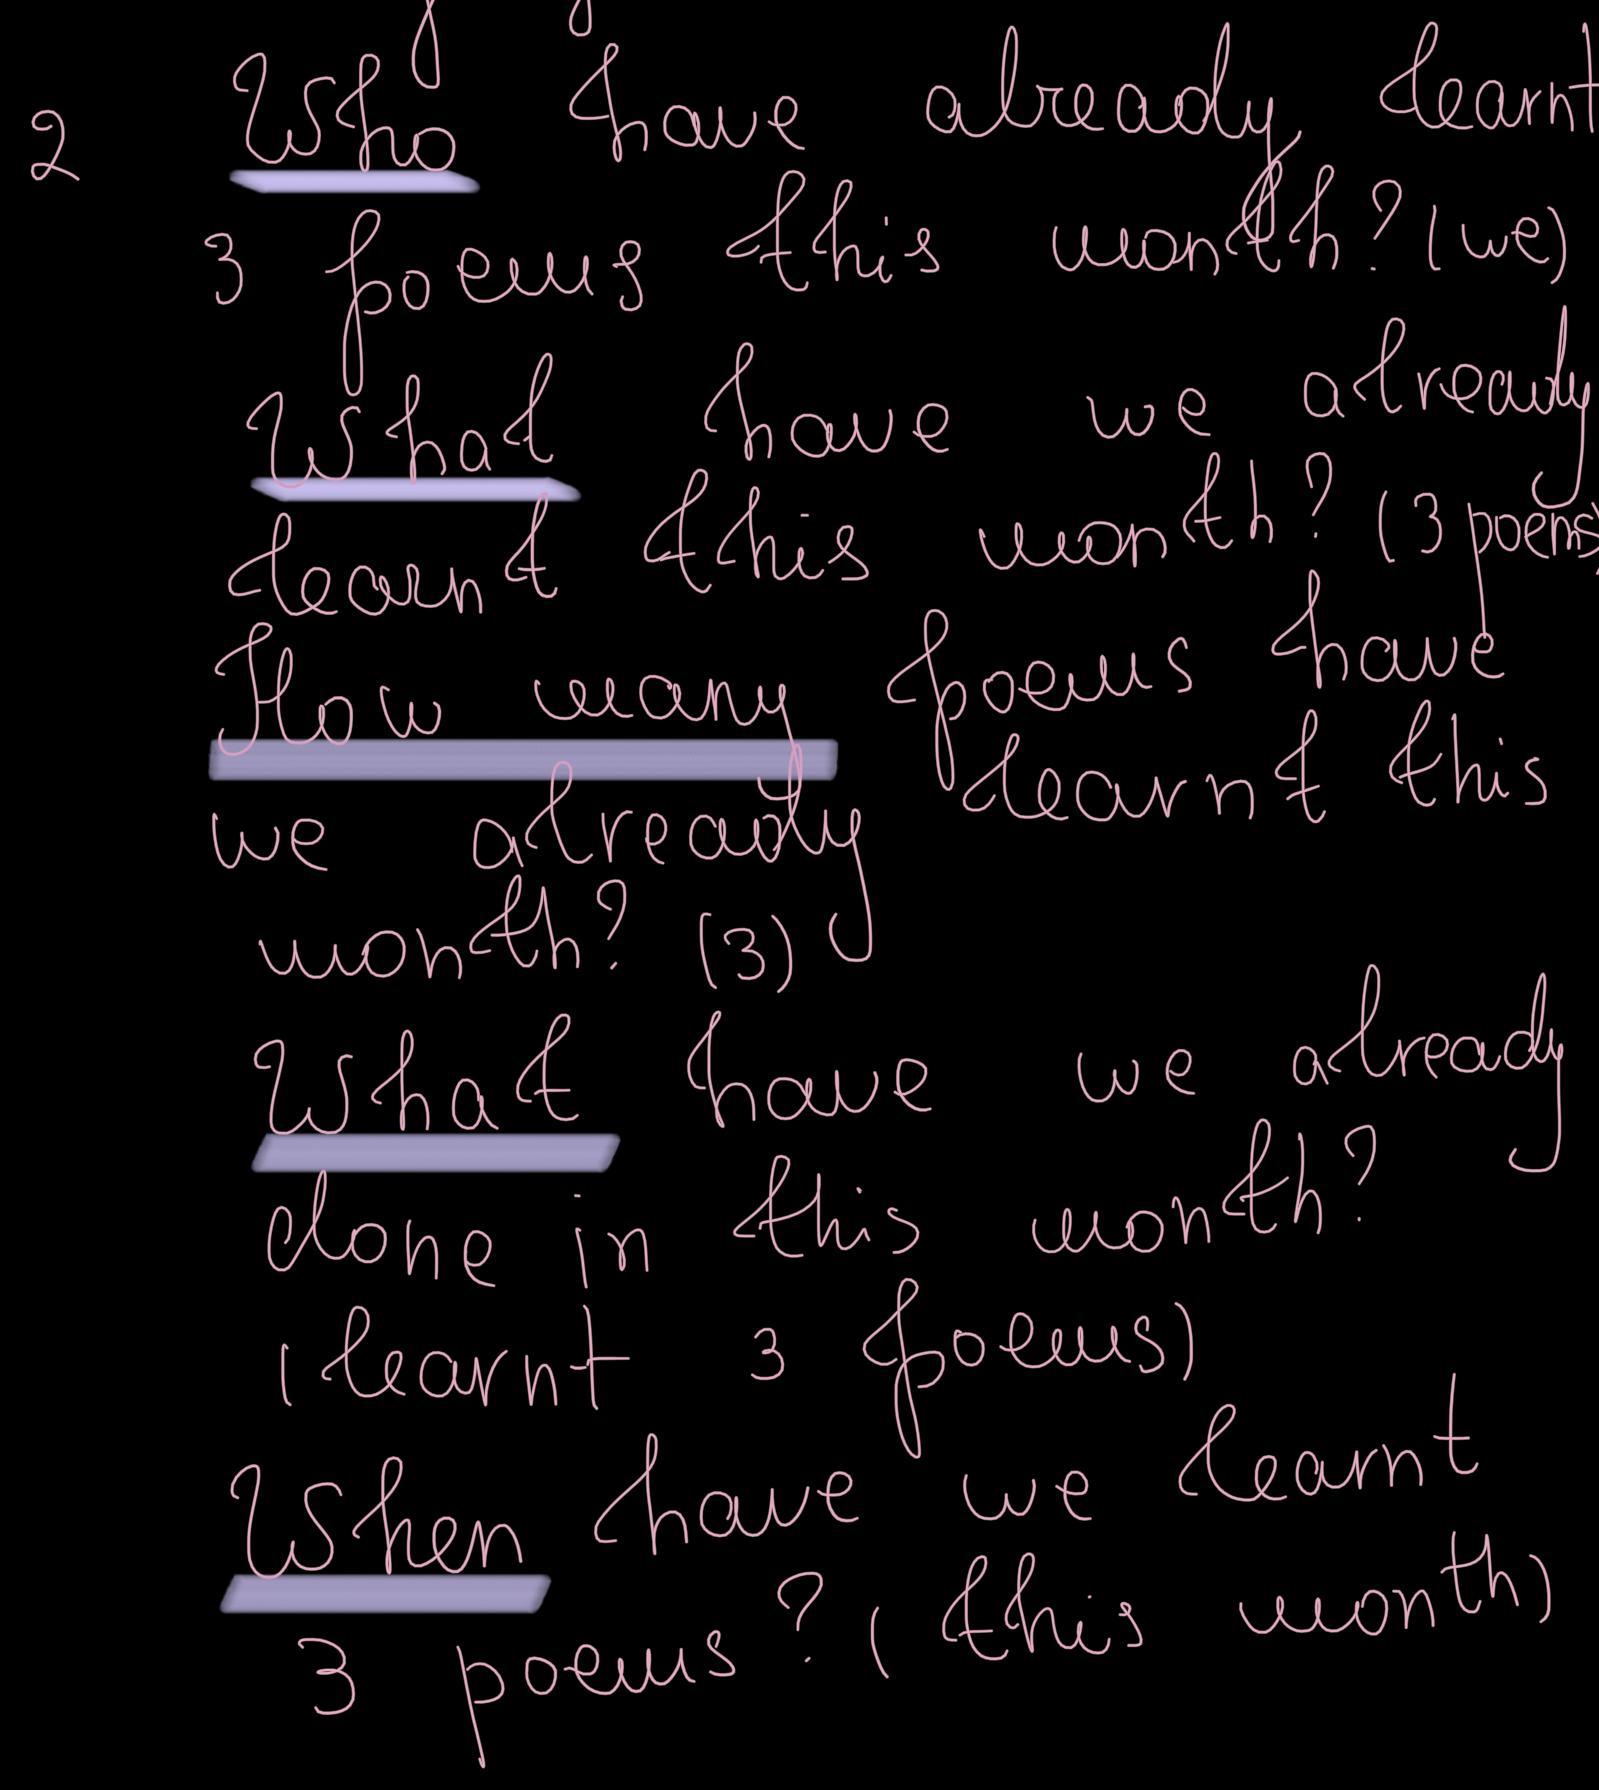 2 Who have already learnt
3 poems this month? (we)
What have we already
learnt this month? (3 poems)
How many poems have
we already learnt this
month? (3)
What have we already
done in this month?
(learnt 3 poems)
When have we learnt
3 poems? (this month)